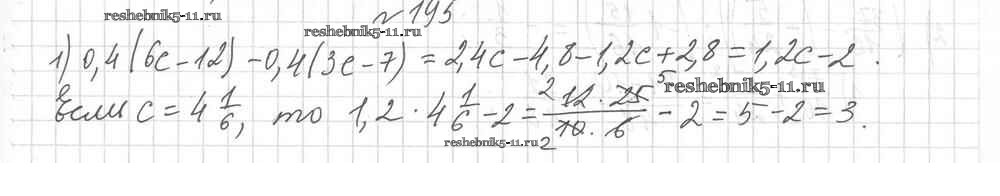 № 195
1) 0,4(6c-12)-0,4(3c-7)=2,4c-4,8-1,2c+2,8=1,2c-2.
Если c=4 1/6, то 1,2·4 1/6-2= 12·25/10·6 -2=5-2=3.
2 5
2
reshebnik5-11.ru
reshebnik5-11.ru
reshebnik5-11.ru
reshebnik5-11.ru